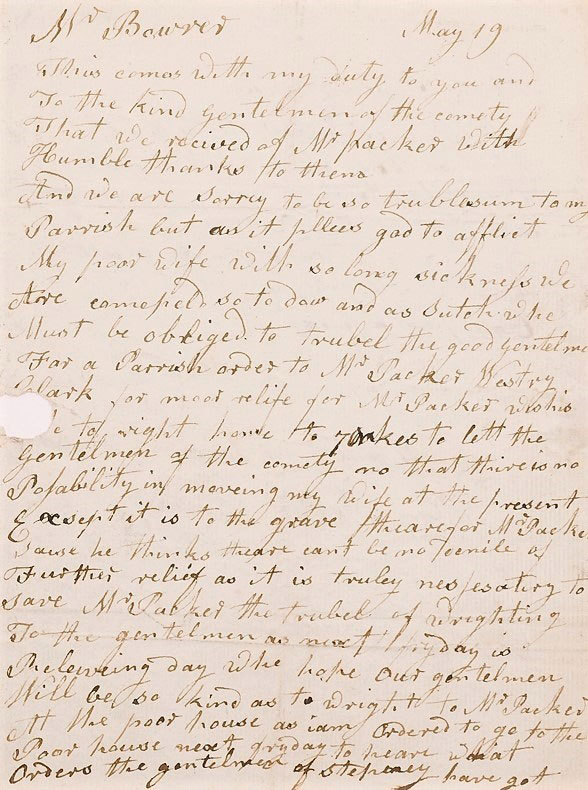 Mr Bowrer May 19
This comes with my duty to you and
To the kind gentelmen of the comety
That we recived of Mr packer with
Humble thanks to them
And we are sorrey to be so trublesum to my
Parrish but as it pllees god to afflict
My poor wife with so long sickness we
Are so to dow and as sutch whe
Must be obliged to trubel the good gentelme
For a Parrish order to Mr Packer Vestry
Clark for moor relife for Mr Packer wishis
to right home to to lett the
Gentelmen of the comety no that there is no
Posability in moveing my wife at the present
Exsept it is to the grave thearefor Mr Packe
Sause he thinks theare cant be no of
Further relief as it is truley nessesary to
save Mr Packer the trubel of wrighting
To the gentelmen as next fryday is
Releiveing day whe hope our gentelmen
Will be so kind as to wright to Mr Packer
At the poor house as iam ordered to go to the
Poor house next fryday to heare what
Orders the gentelmen of stepney have got